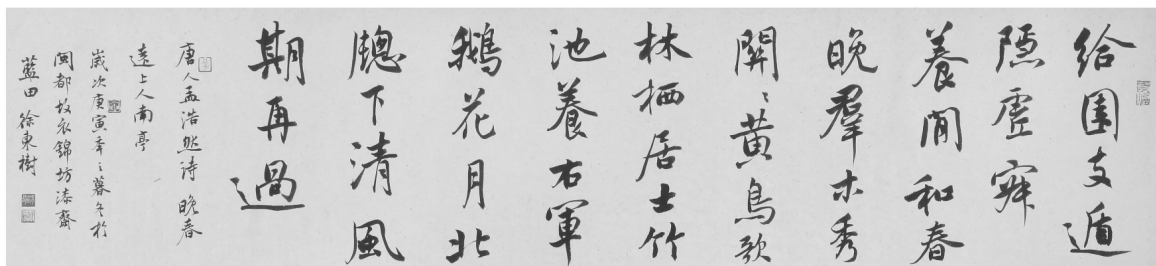 給園支遁
隱虛寂
養閒和春
晚羣木秀
関〻黃鳥歌
林栖居士竹
池養右軍
鵝花月北
牎下清風
期再過
唐人孟浩然诗 晚春
遠上人南亭
歲次庚寅年〻暮冬於
閩都故衣錦坊漆齋
藍田 徐東樹